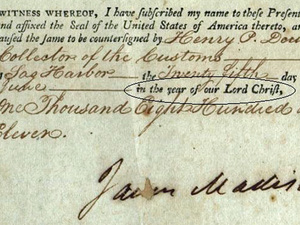 WITNESS WHEREOF, I have subscribed my name to these Present
and affixed the Seal of the United States of America thereto, an
caused the same to be countersigned by Henry P. D
Collector of the Customs
Sag Harbor the Twenty Fifth day
June in the year of our Lord Christ,
One Thousand Eight Hundred
Eleven.
James Madis